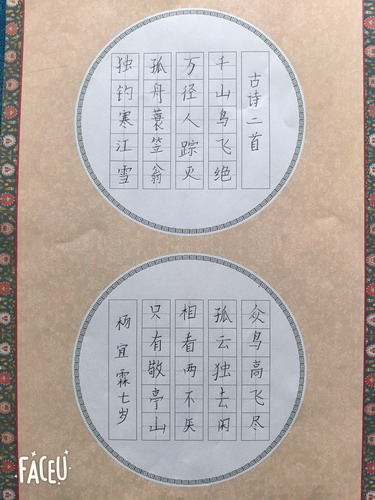 古诗二首
千山鸟飞绝
万径人踪灭
孤舟蓑笠翁
独钓寒江雪
众鸟高飞尽
孤云独去闲
相看两不厌
只有敬亭山
杨宜霖七岁
FACEU